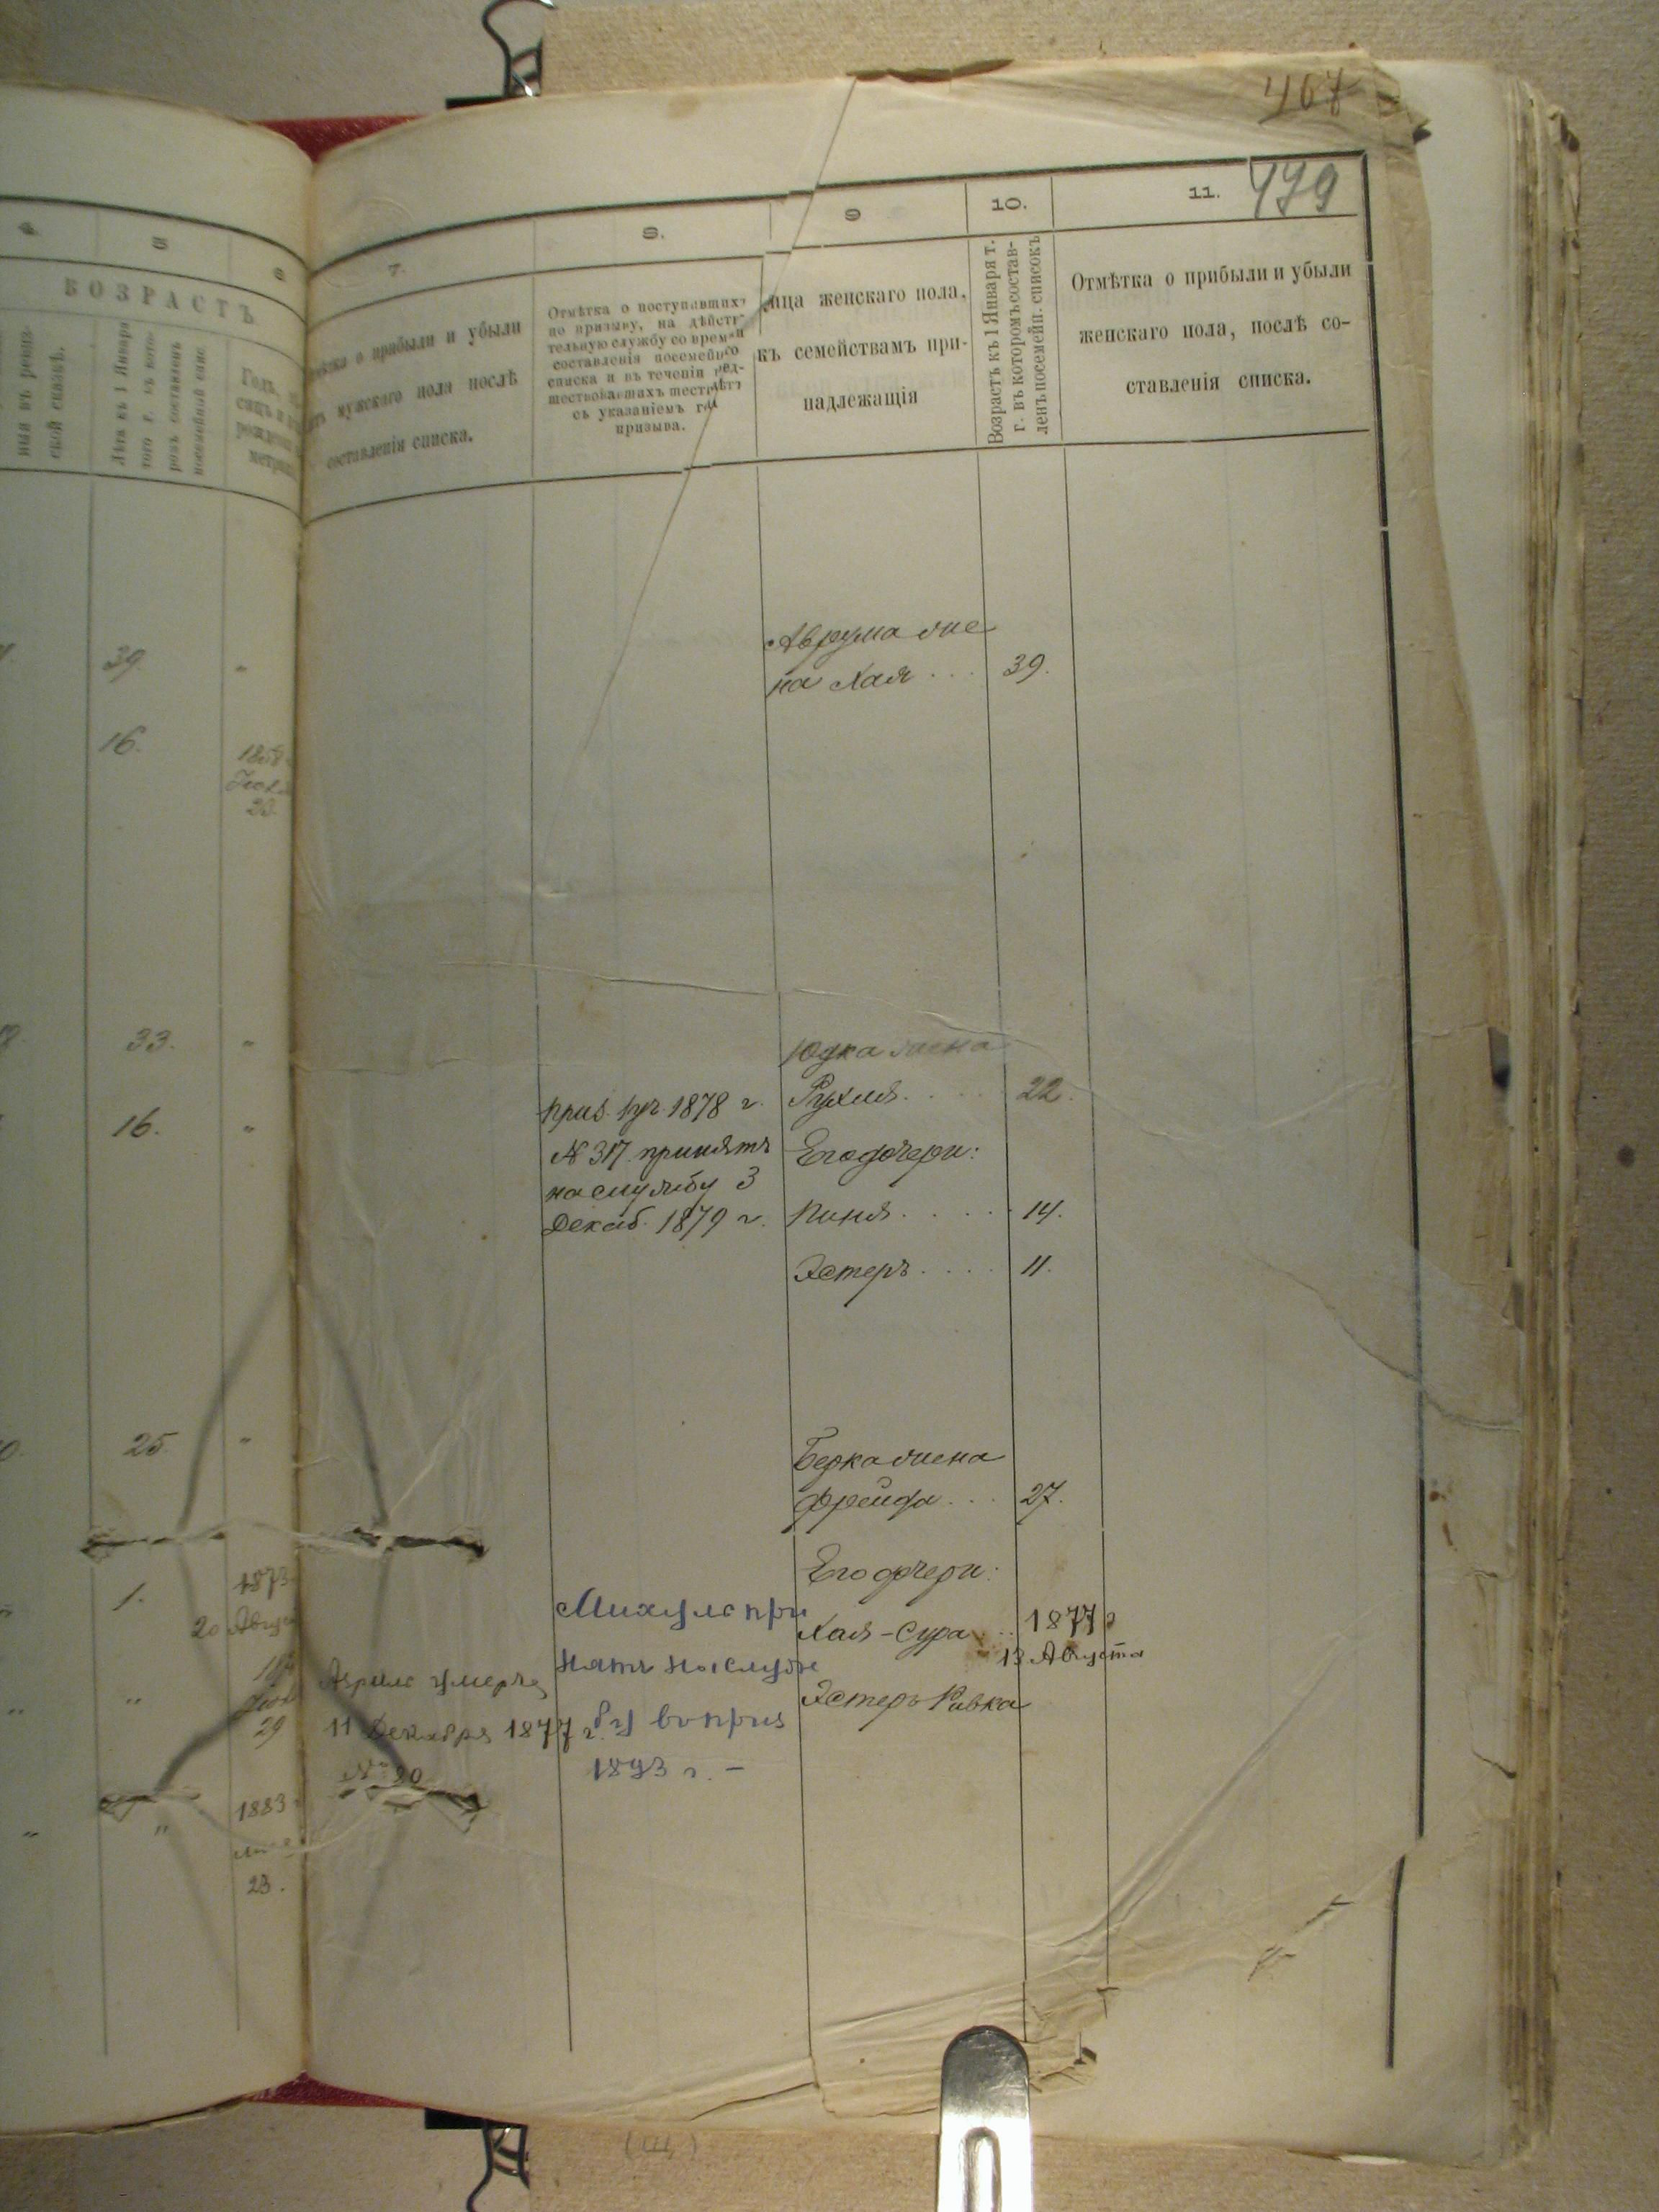 467
479
4
5
6
7.
8.
9
10.
11.
ВОЗРАСТЪ
ныя въ ревиз-
ской сказкѣ.
Лѣта къ 1 Января
того г. въ кото-
ромъ составленъ
посемейный спис
Годъ,
рожден
метрик
о прибыли и убыли
мужскаго пола послѣ
составленія списка.
Отмѣтка о поступавшихъ
по призыву, на дѣйст-
тельную службу со времени
составленія посемейнаго
списка и въ теченіи пред-
шествовавшихъ шести лѣтъ
съ указаніемъ года
призыва.
Лица женскаго пола,
къ семействамъ при-
надлежащія
Возрастъ къ 1 Января т.
г. въ которомъ состав-
ленъ посемейн. списокъ
Отмѣтка о прибыли и убыли
женскаго пола, послѣ со-
ставленія списка.
Аврума же
39. "
на Хая . . . 39.
16. 1858
23.
33. "
Юдка жена
приз. 1878 г. Рухля . . . . 22.
16. "
№ 317 принятъ Его дочери:
на службу 3
Декаб. 1879 г. Киня . . . . . 14.
Эстеръ . . . . 11.
25. "
Берка жена
Фрейда . . . 27.
Его дочери:
1. 1873
20 Авгус
Михуль при Хая-Сура . . 1877 г
13 Августа
нятъ на служ
Азриль умеръ Эстеръ Ривка
"
29 11 Декабря 1877 г. бу въ приз
1893 г. –
№ 20
" " 1883
23.